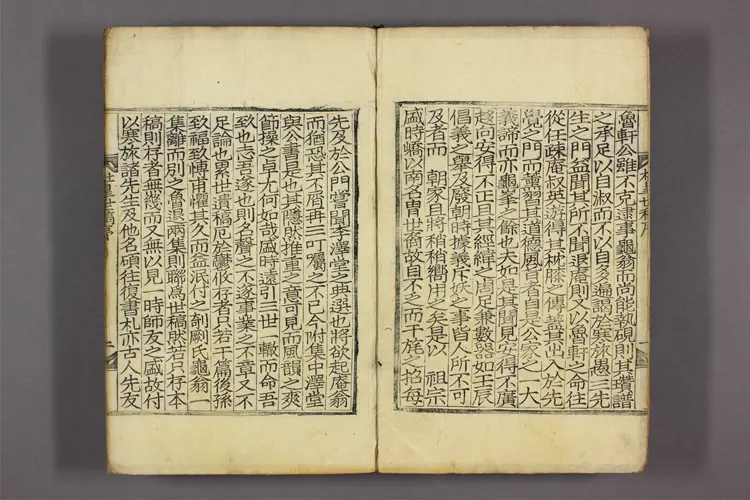 魯軒公雖不克逮事龜翁而尚能執硯則其瓚譜
之承足以自淑而不以自多遍謁於寒旅愚三先
生之門益聞其所不聞退庵則又以魯軒之命往
從任疎庵叔英游得其枕膝之傳蓋其出入於先
覺之門而薰習其道德風旨者自是公家之一大
義諦而亦龜峯之餘也夫如是其聞見安得不廣
趍向安得不正且其經緯之周足兼數器如壬辰
倡義之擧及廢朝時據義斥妖之事皆人所不可
及者而 朝家且將稍稍嚮用之矣是以 祖宗
盛時嶠以南名胄世裔故自不乏而干旄之招每
先及於公門嘗聞李澤堂之典選也將欲起庵翁
而猶恐其不屑再三叮囑之不已今附集中澤堂
與公書是也其隱然推重之意可見而風韻之爽
節操之卓尤何如哉盛時遠引三世一轍而命吾
致也志吾遂也則名聲之不遂事業之不章又不
足論也累世遺稿厄於鬱攸存者只若干篇後孫
致福致博甫懼其久而益泯付之剞劂氏龜翁一
集離而別之魯退兩集則聯爲世稿然若只存本
稿則存者無幾而又無以見一時師友之盛故付
以寒旅諸先生及他名碩往復書札亦古人先友
杜皐世稿序
一
杜皐世稿序
二